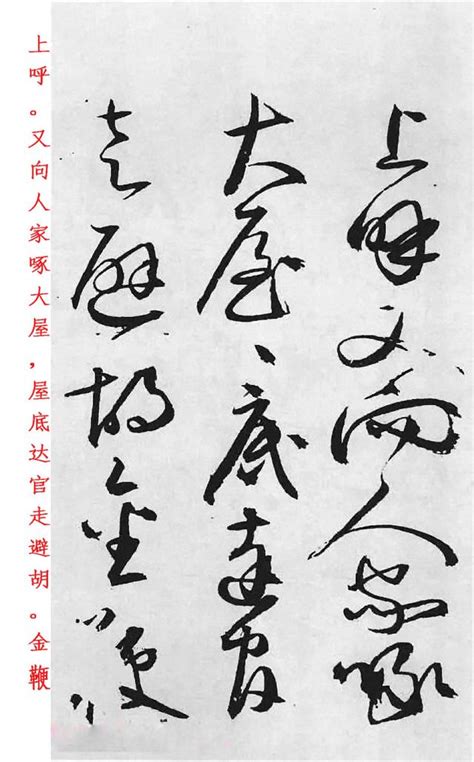 上呼。又向人家啄大屋，屋底达官走避胡。金鞭
上呼又向人家啄
大屋〻底達官
走避胡金鞭